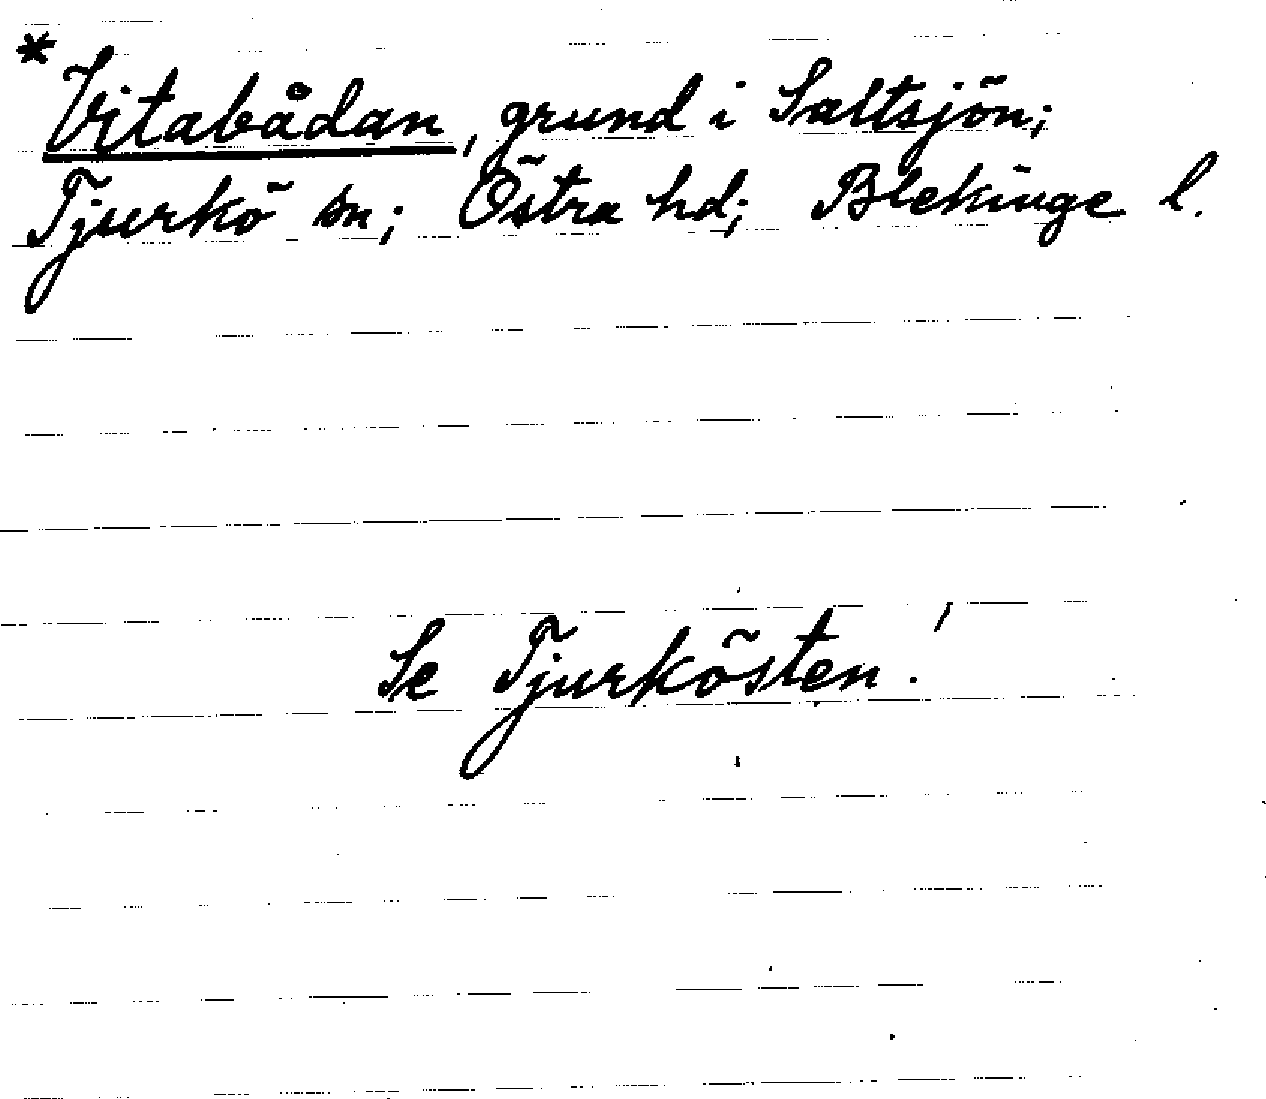 * Vitabådan, grund i Saltsjön;
Tjurkö sn; Östra hd; Blekinge l.
Se Tjurkösten!